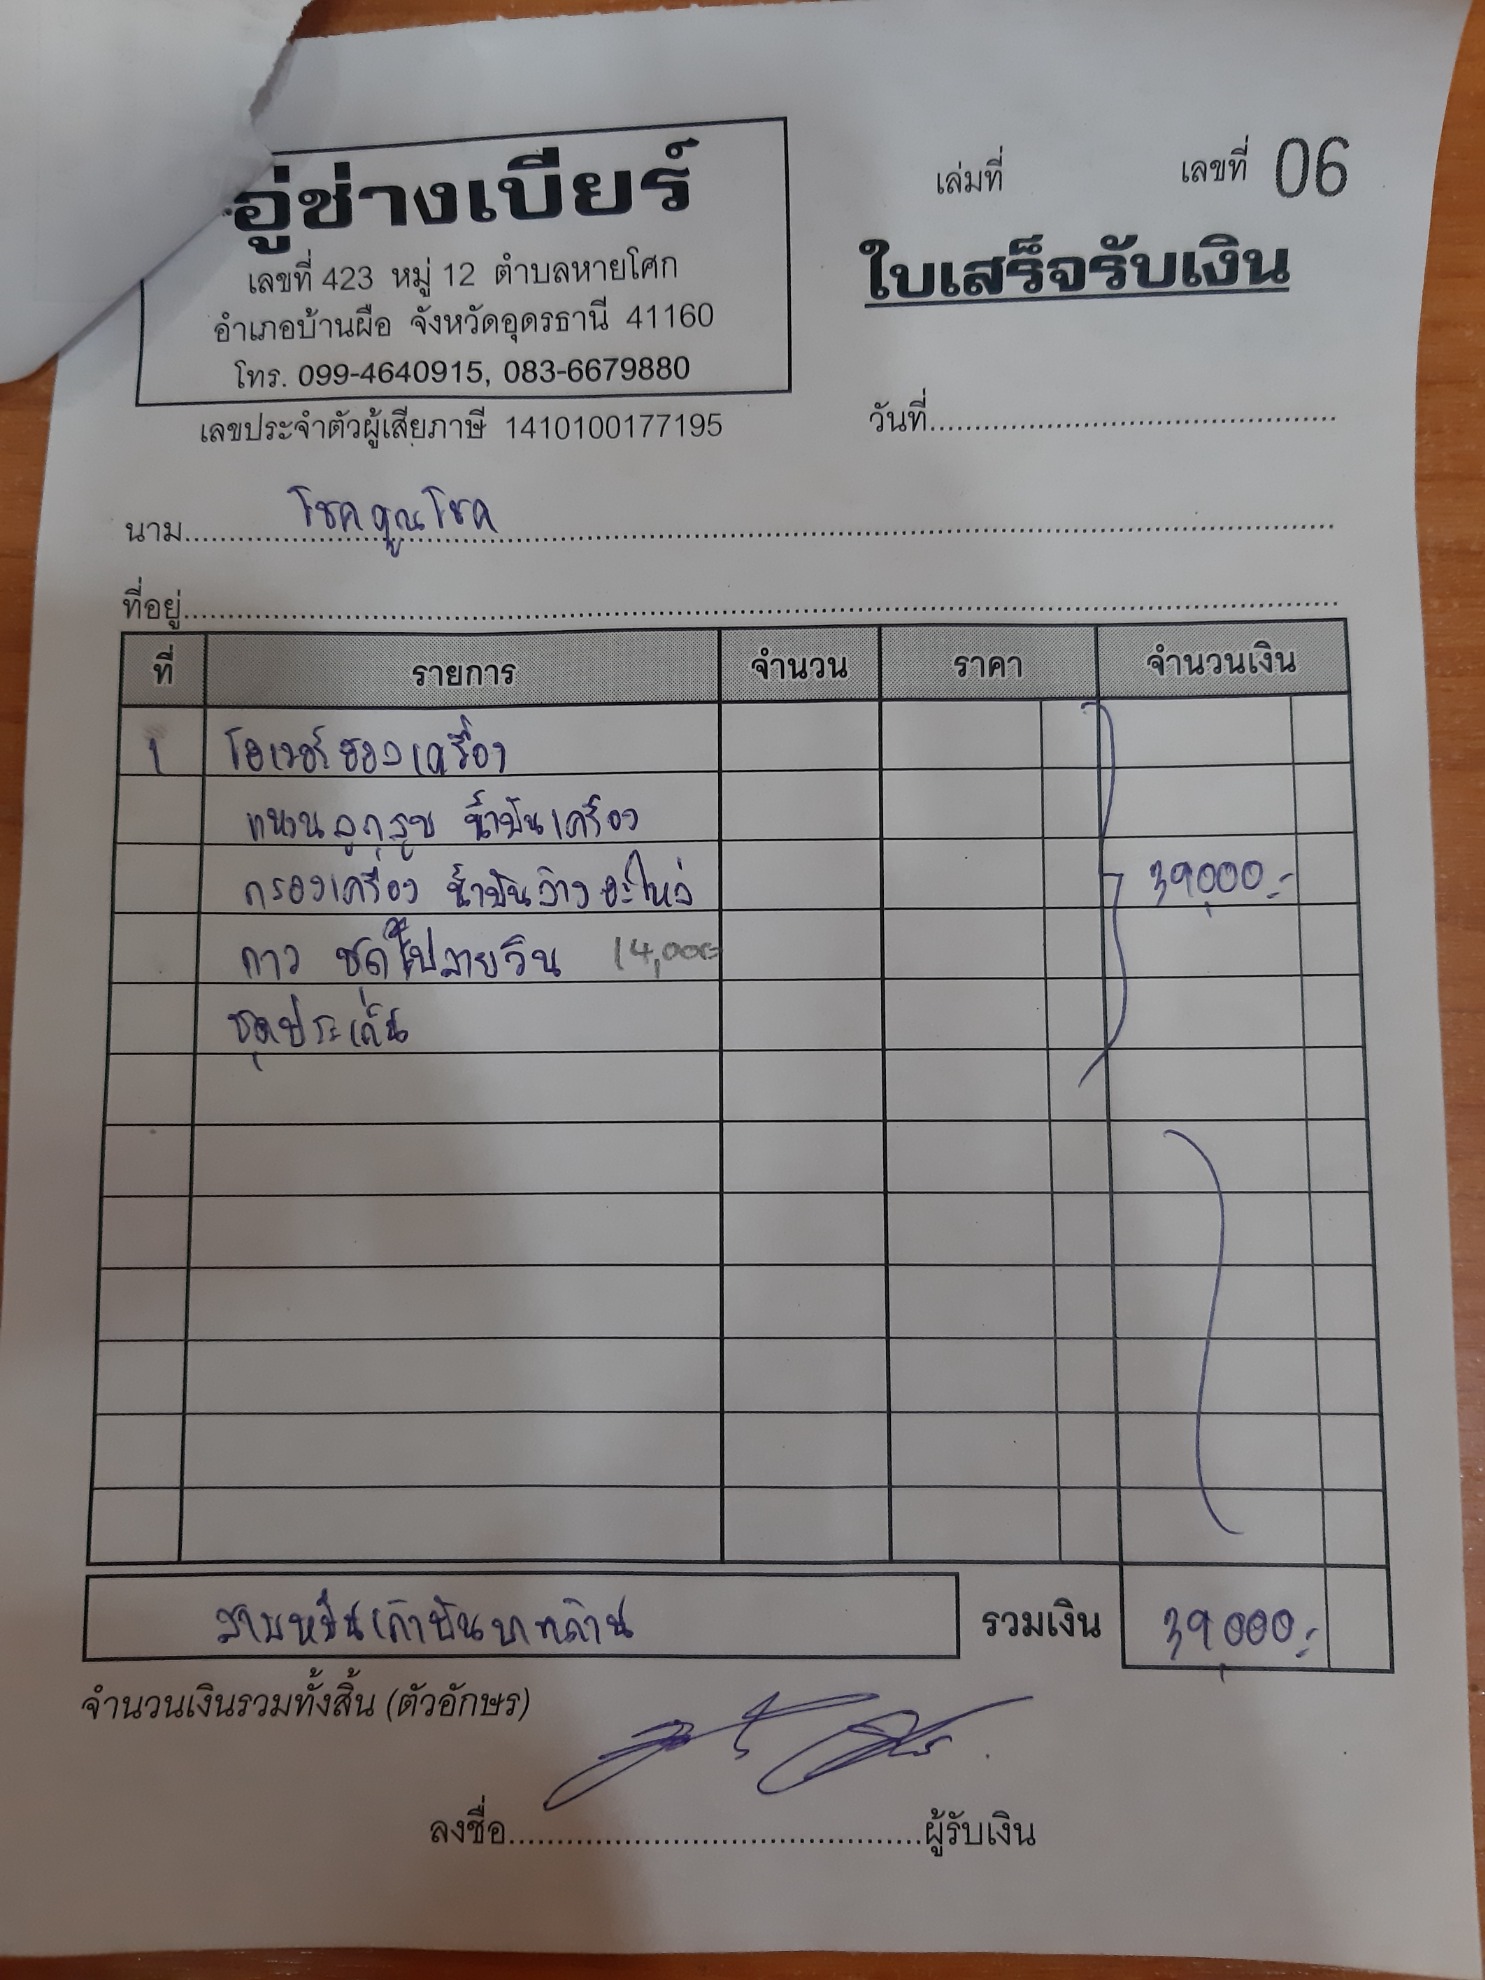 อู่ช่างเบียร์
เลขที่ 423 หมู่ 12 ตำบลหายโศก
อำเภอบ้านผือ จังหวัดอุดรธานี 41160
โทร. 099-4640915, 083-6679880
เลขประจำตัวผู้เสียภาษี 1410100177195
เล่มที่ เลขที่ 06
ใบเสร็จรับเงิน
วันที่
นาม โชคคูณโชค
ที่อยู่
ที่ รายการ จำนวน ราคา จำนวนเงิน
1 เครื่อง
แหวนลูกสูบ น้ำมันเครื่อง
กรองเครื่อง น้ำมันล้างอะไหล่ 39,000.-
กาว 14,000
ชุดประเก็น
สามหมื่นเก้าพันบาทถ้วน รวมเงิน 39,000.-
จำนวนเงินรวมทั้งสิ้น (ตัวอักษร)
ลงชื่อ ผู้รับเงิน